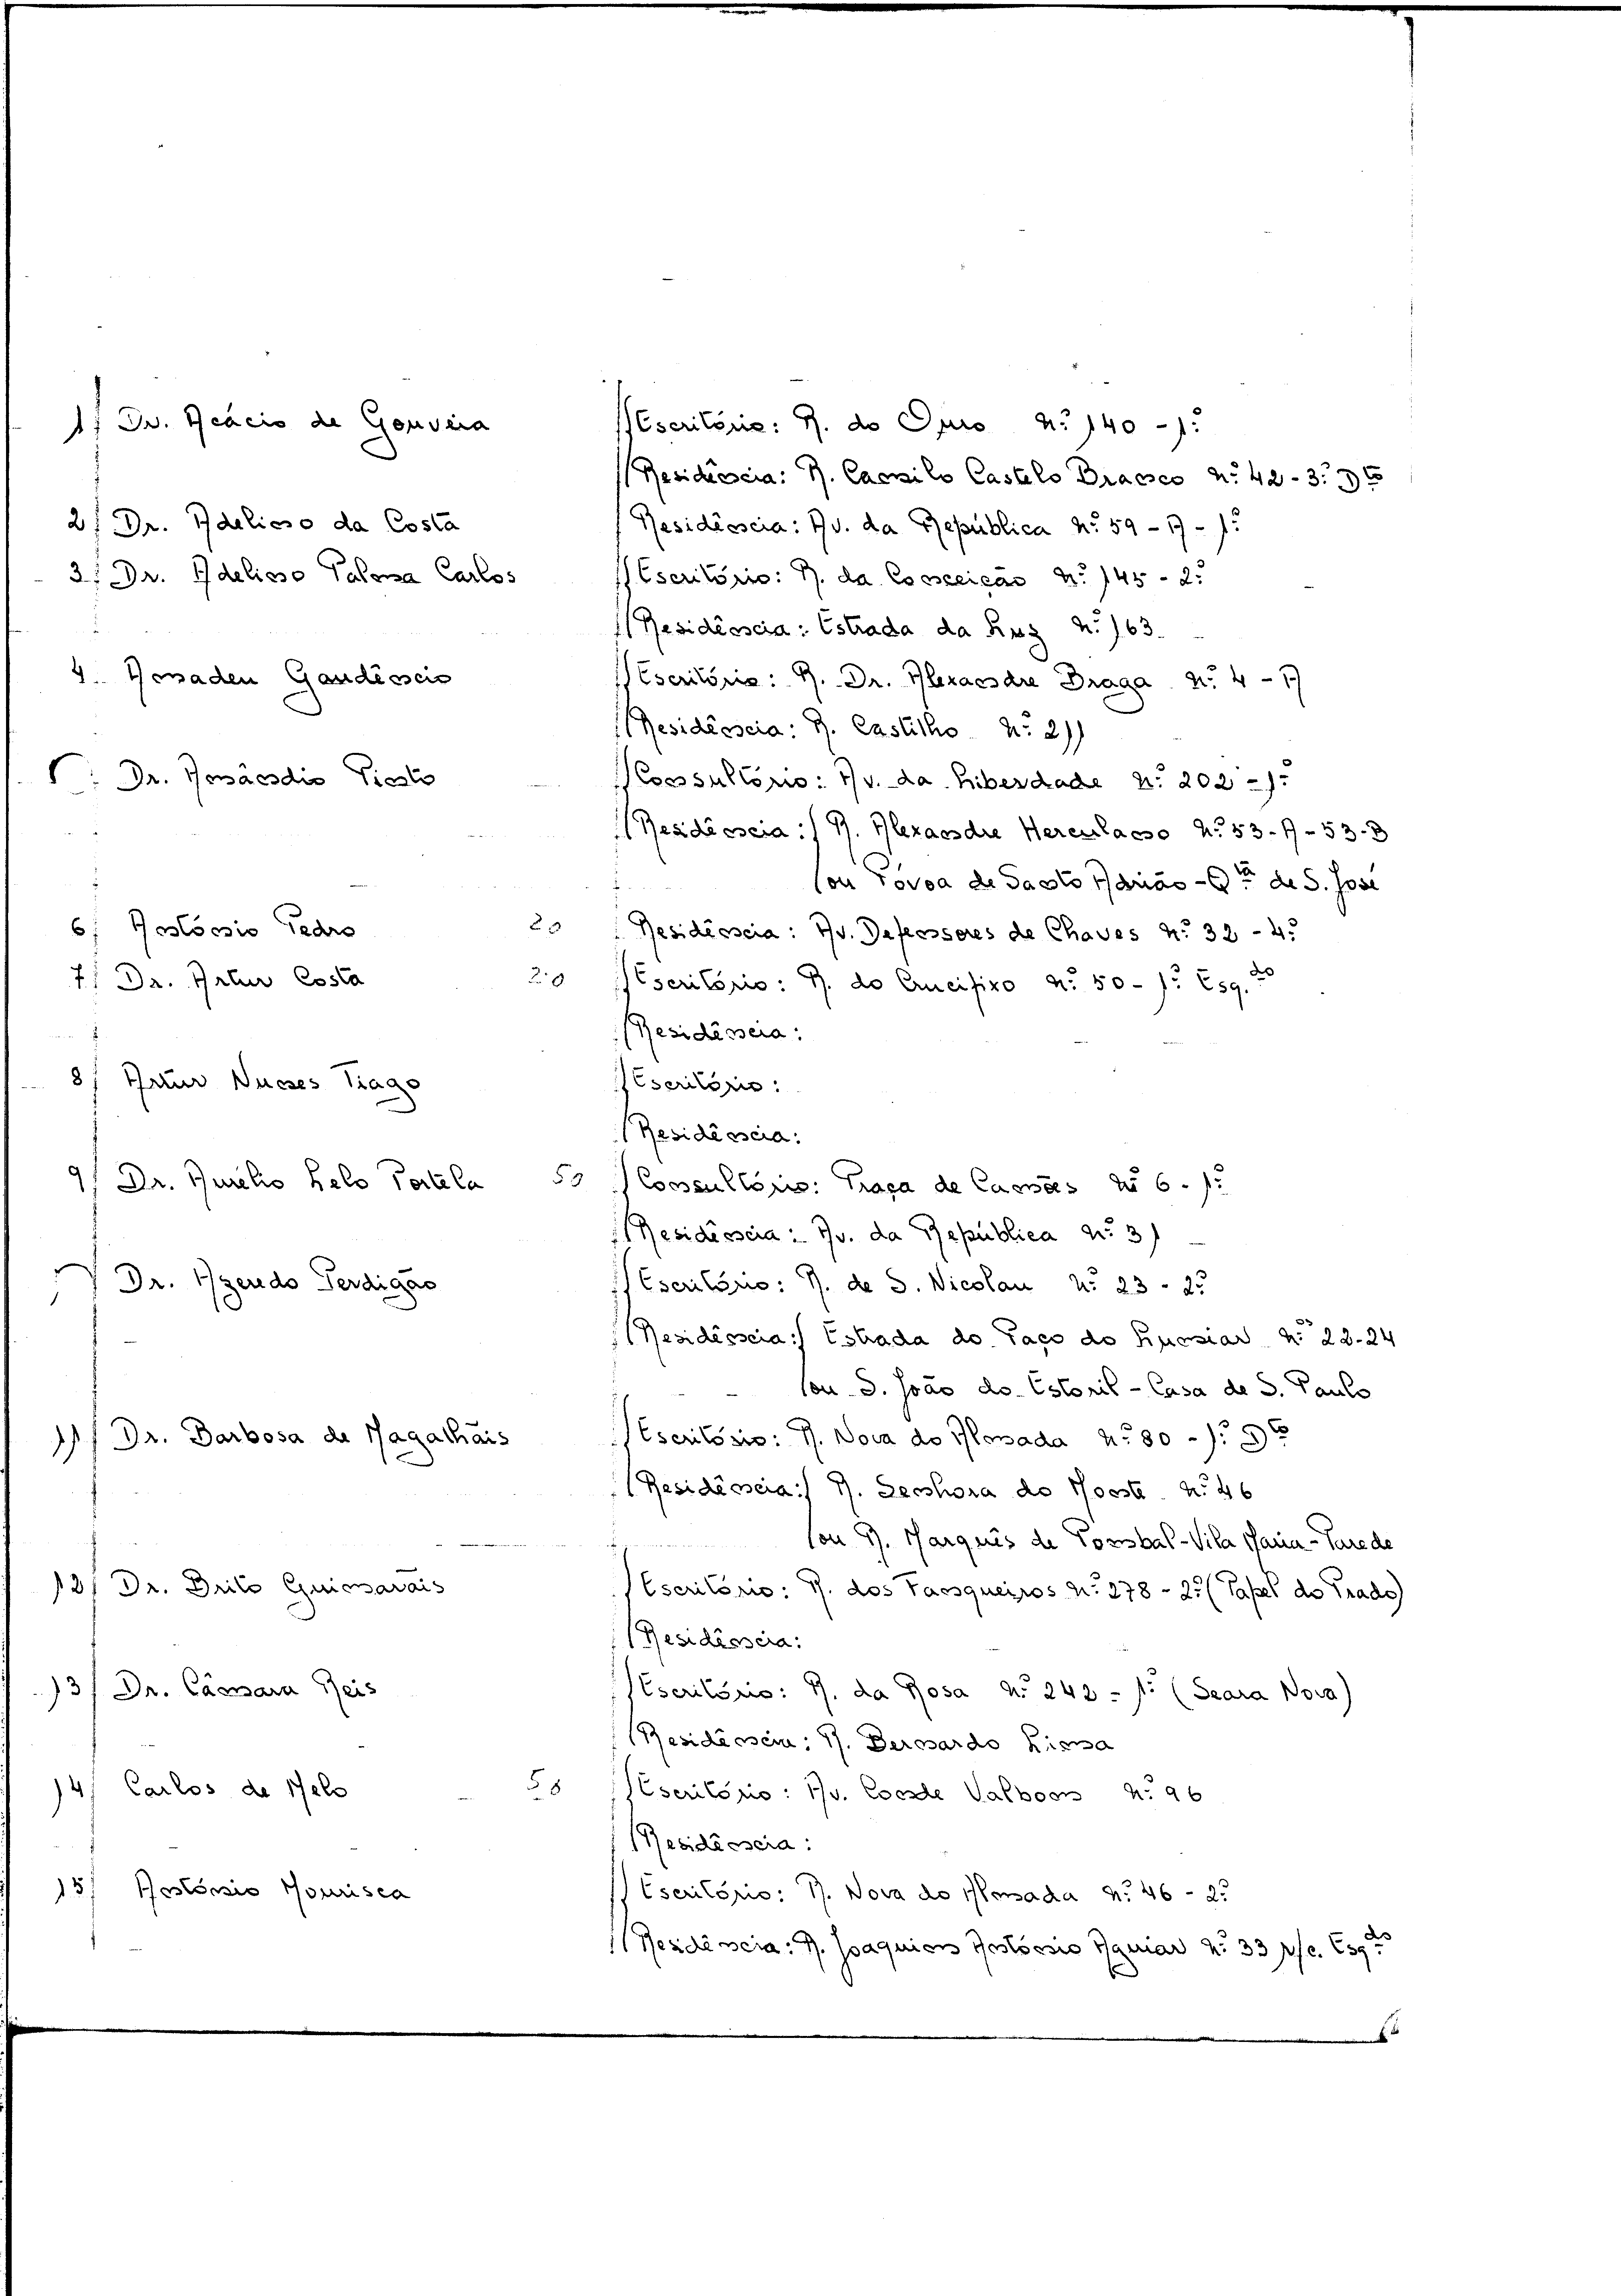 1/ Dr. Acácio de Gouveia
Escritório: R. do Ouro nº 140 - 1º
Residência: R. Camilo Castelo Branco nº 42 - 3º Dto
2/ Dr. Adelino da Costa
Residência: Av. da República nº 59 - A - 1º
3/ Dr. Adelino Palma Carlos
Escritório: R. da Conceição nº 145 - 2º
Residência: Estrada da Luz nº 163
4. Amadeu Gaudêncio
Escritório: R. Dr. Alexandre Braga nº 4 - A
Residência: R. Castilho nº 211
Dr. Armândio Pinto
Consultório: Av. da Liberdade nº 202 - 1º
Residência: / R. Alexandre Herculano nº 53 - A - 53 - B
ou Póvoa de Santo Adrião - Qta de S. José
6/ António Pedro 20
Residência: Av. Defensores de Chaves nº 32 - 4º
7/ Dr. Artur Costa 20
Escritório: R. do Crucifixo nº 50 - 1º Esq.do
Residência:
8/ Artur Nunes Tiago
Escritório:
Residência:
9/ Dr. Aurélio Lelo Portela 50
Consultório: Praça de Camões nº 6 - 1º
Residência: Av. da República nº 31
Dr. Azeredo Perdigão
Escritório: R. de S. Nicolau nº 23 - 2º
Residência: / Estrada do Paço do Lumiar nº 22-24
ou S. João do Estoril - Casa de S. Paulo
11/ Dr. Barbosa de Magalhãis
Escritório: R. Nova do Almada nº 80 - 1º Dto
Residência: / R. Senhora do Monte nº 46
ou R. Marquês de Pombal - Vila Maria - Parede
12/ Dr. Brito Guimarãis
Escritório: R. dos Fanqueiros nº 278 - 2º (Papel do Prado)
Residência:
13/ Dr. Câmara Reis
Escritório: R. da Rosa nº 242 - 1º (Seara Nova)
Residência: R. Bernardo Lima
14/ Carlos de Melo 50
Escritório: Av. Conde Valbom nº 96
Residência:
15/ António Mourisca
Escritório: R. Nova do Almada nº 46 - 2º
Residência: R. Joaquim António Aguiar nº 33 r/c. Esqdo